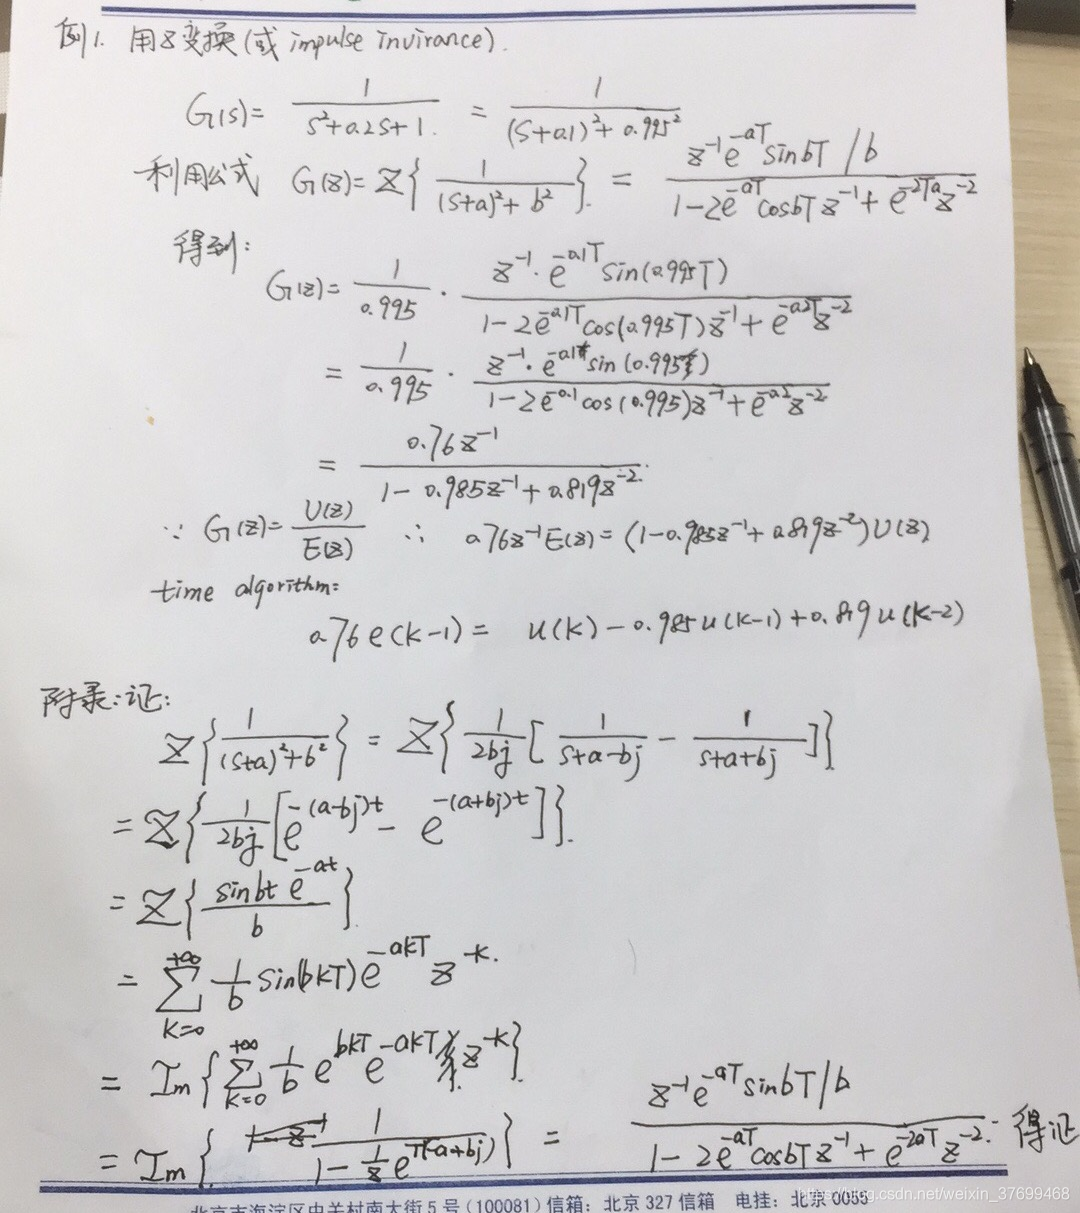 例1. 用Z变换(或 impulse invirance).
G(s)= 1/(s²+0.2s+1.) = 1/((s+0.1)²+0.995²)
利用公式 G(z)=Z{1/((s+a)²+b²)}. = (z⁻¹e^(-aT)sinbT/b)/(1-2e^(-aT)cosbTz⁻¹+e^(-2Ta)z⁻²)
得到:
G(z)= 1/0.995 · (z⁻¹·e^(-0.1T)sin(0.995T))/(1-2e^(-0.1T)cos(0.995T)z⁻¹+e^(-0.2T)z⁻²)
= 1/0.995 · (z⁻¹·e^(-0.1)sin(0.995))/(1-2e^(-0.1)cos(0.995)z⁻¹+e^(-0.2)z⁻²)
= 0.76z⁻¹/(1-0.985z⁻¹+0.819z⁻²).
∵ G(z)=U(z)/E(z) ∴ 0.76z⁻¹E(z)=(1-0.985z⁻¹+0.819z⁻²)U(z)
time algorithm:
0.76e(k-1)= u(k)-0.985u(k-1)+0.819u(k-2)
附录:证:
Z{1/((s+a)²+b²)} = Z{1/2bj[1/(s+a-bj) - 1/(s+a+bj)]}
=Z{1/2bj[e^(-(a-bj)t) - e^(-(a+bj)t)]}.
=Z{sinbt e^(-at)/b}
= ∑_(k=0)^(+∞) 1/b sin(bkT)e^(-akT)z^(-k).
= Im{∑_(k=0)^(+∞) 1/b e^(bkT)e^(-akT)z^(-k)}
= Im{1/(1-1/z e^(T(-a+bj)))} = (z⁻¹e^(-aT)sinbT/b)/(1-2e^(-aT)cosbTz⁻¹+e^(-2aT)z⁻²). 得证
北京市海淀区中关村南大街5号(100081)信箱:北京327信箱 电挂:北京0055
https://blog.csdn.net/weixin_37699468